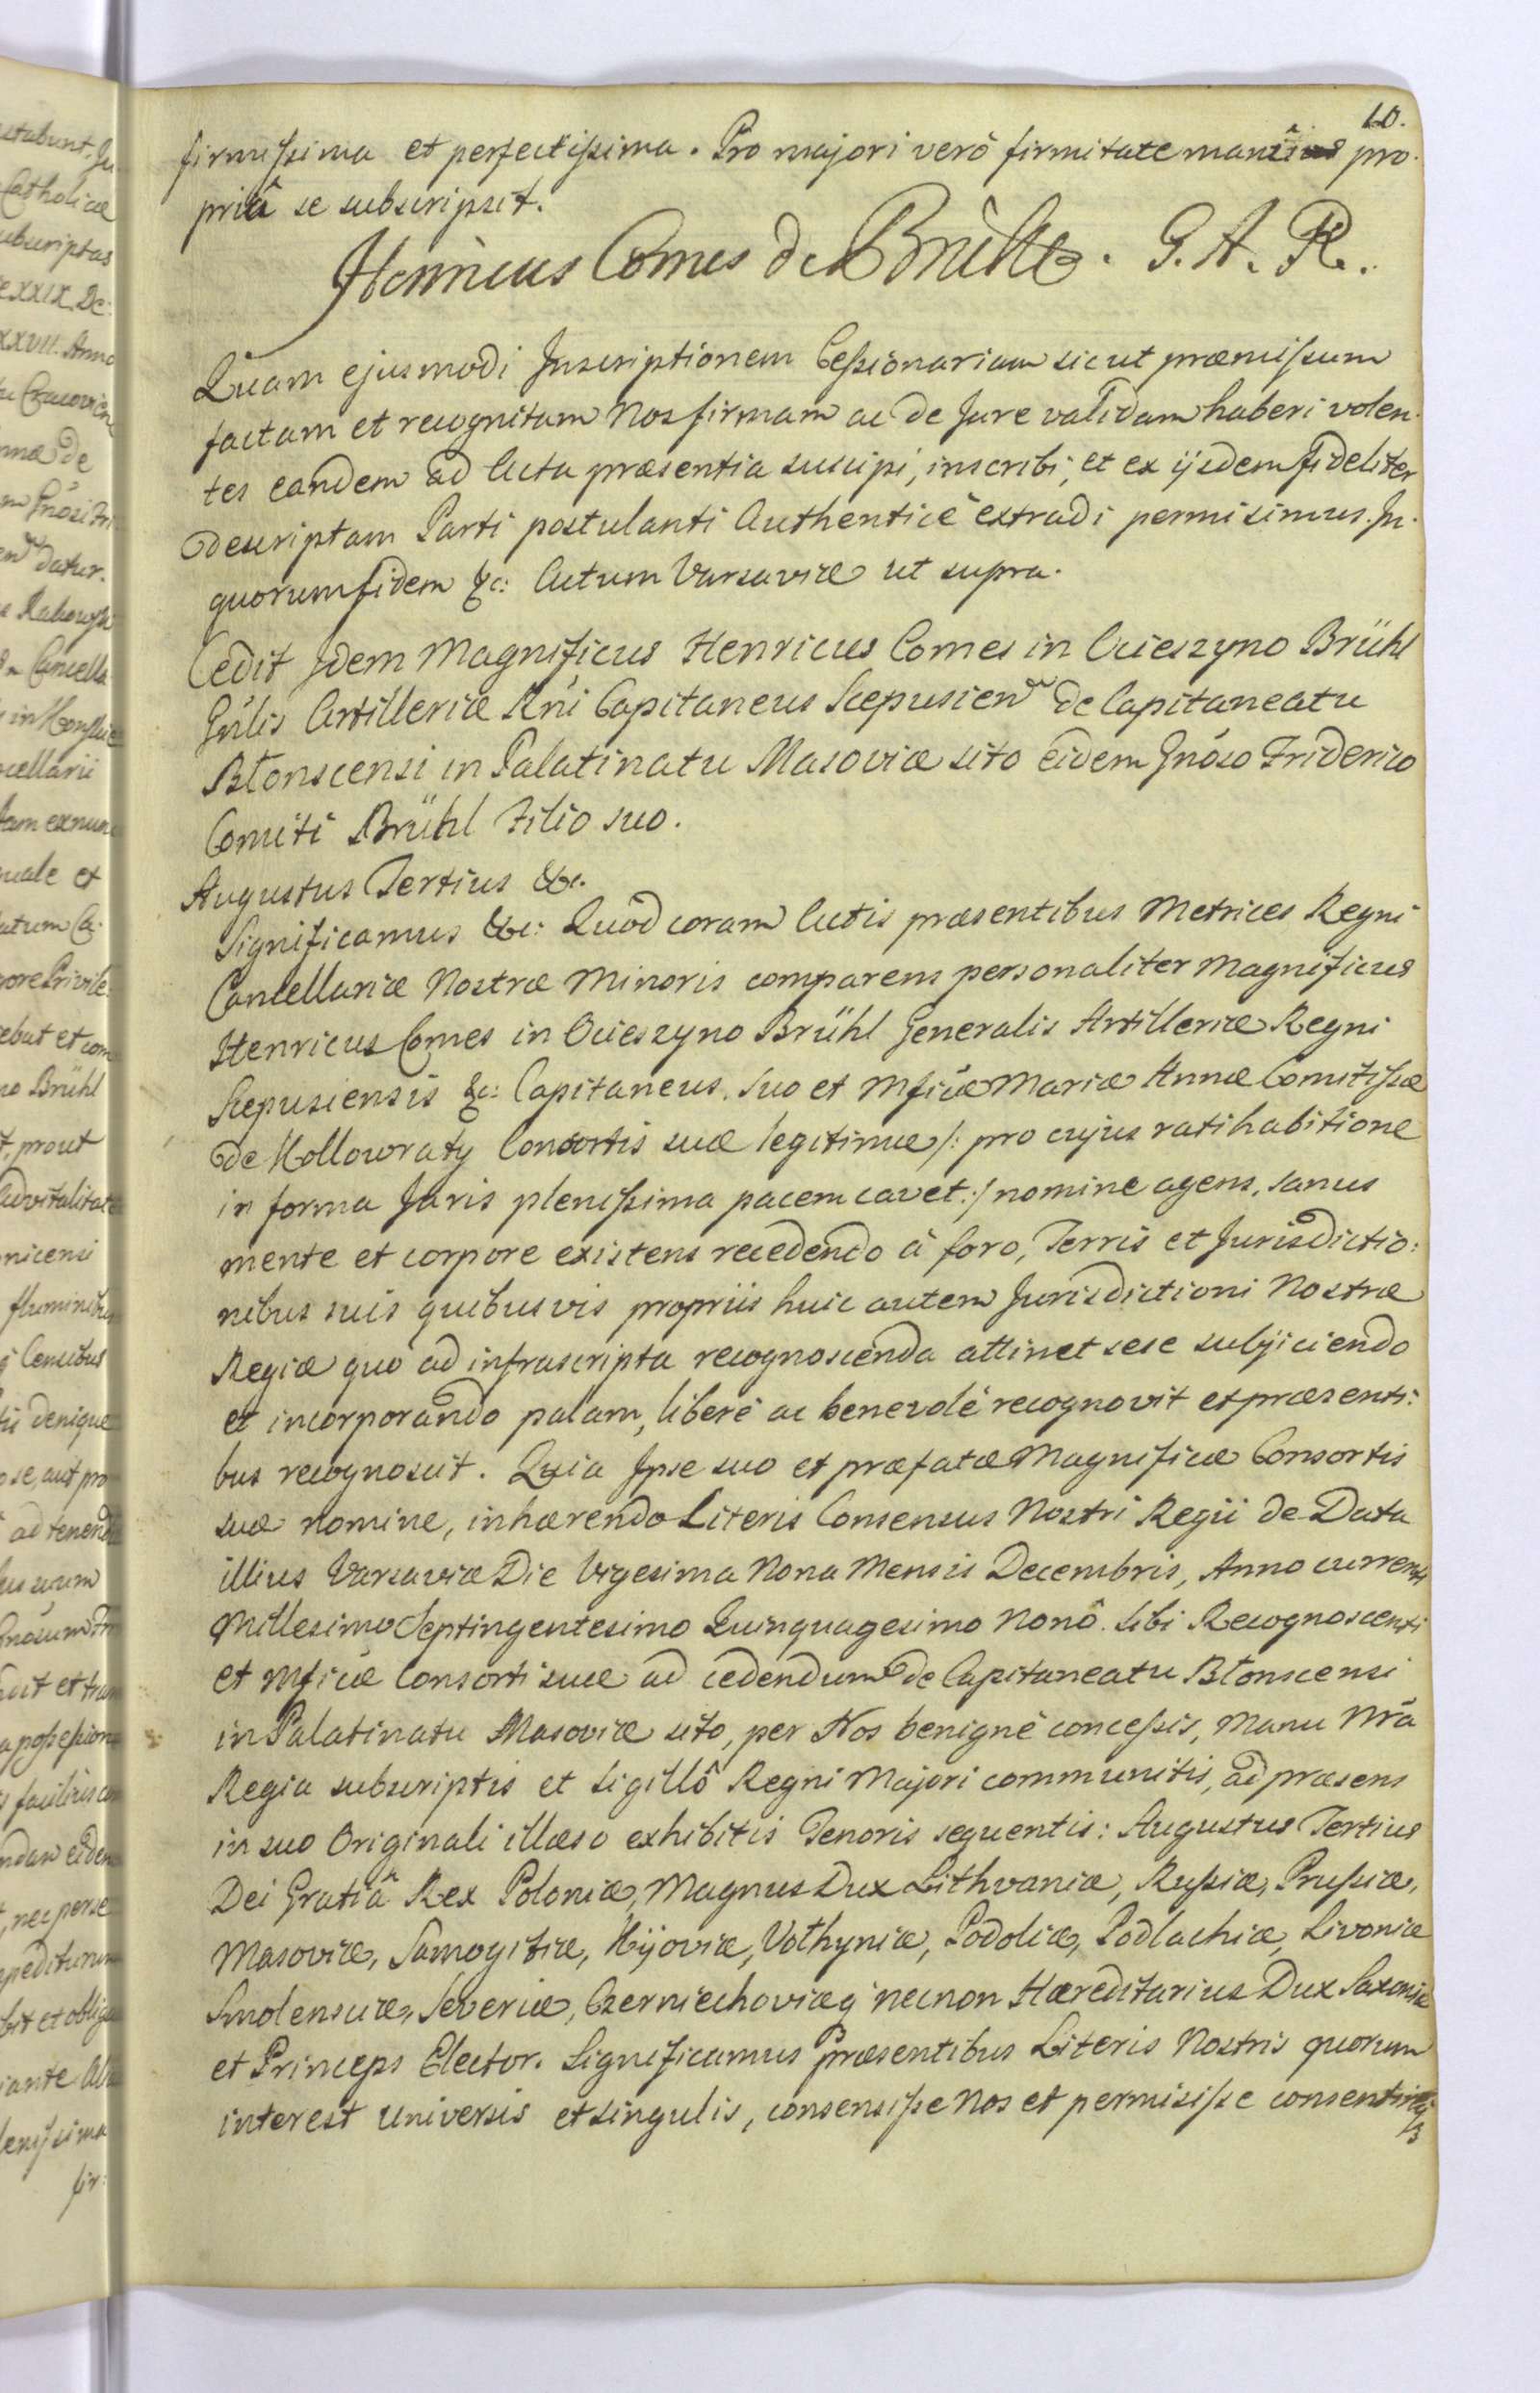 10.
firmissima et perfectissima. Pro majori verò firmitate manu pro.
priâ se subscripsit.
Henricus Comes de Brühl. G. A. R.
Quam ejusmodi Inscriptionem Cessionariam sicut præmissum
factam et recognitam Nos firmam ac de Jure validam haberi volen.
tes eandem ad Acta præsentia suscipi, inscribi, et ex ijsdem fideliter
descriptam Parti postulanti Authenticè extradi permisimus. In.
quorum fidem &c: Actum Varsaviæ ut supra.
Cedit Idem Magnificus Henricus Comes in Ocieszyno Brühl
Gnlis Artilleriæ Rni Capitaneus Scepusien de Capitaneatu
Błonscensi in Palatinatu Masoviæ sito eidem Gnôso Friderico
Comiti Brühl Filio suo.
Augustus Tertius &c.
Significamus &c: Quod coram Actis præsentibus Metrices Regni
Cancellariæ Nostræ Minoris comparens personaliter Magnificus
Henricus Comes in Ocieszyno Brühl Generalis Artilleriæ Regni
Scepusiensis &c: Capitaneus. suo et Mficæ Mariæ Annæ Comitissæ
de Kollowraty Consortis suæ legitimæ /: pro cujus ratihabitione
in forma Juris plenissima pacem cavet :/ nomine agens, sanus
mente et corpore existens recedendo à foro, Terris et Jurisdictio:
nibus suis quibusvis propriis huic autem Jurisdictioni Nostræ
Regiæ quo ad infrascripta recognoscenda attinet sese subjiciendo
et incorporando palam, liberè ac benevolè recognovit et præsenti:
bus recognoscit. Quia Ipse suo et præfatæ Magnificæ Consortis
suæ nomine, inhærendo Literis Consensus Nostri Regii de Data
illius Varsaviæ Die Vigesima Nona Mensis Decembris, Anno current
Millesimo Septingentesimo Quinquagesimo Nonô. sibi Recognoscenti
et Mficæ Consorti suæ ad cedendum de Capitaneatu Błonscensi
in Palatinatu Masoviæ sito, per Nos benignè concessis, Manu Nrâ
Regia subscriptis et Sigillô Regni Majori communitis, ad præsens
in suo Originali illæso exhibitis Tenoris sequentis: Augustus Tertius
Dei Gratiâ Rex Poloniæ, Magnus Dux Lithvaniæ, Russiæ, Prussiæ,
Masoviæ, Samogitiæ, Kijoviæ, Volhyniæ, Podoliæ, Podlachiæ, Livoniæ
Smolensciæ, Severiæ, Czerniechoviæq necnon Hæreditarius Dux Saxoniæ
et Princeps Elector. Significamus præsentibus Literis Nostris quorum
interest universis et singulis, consensisse Nos et permisisse